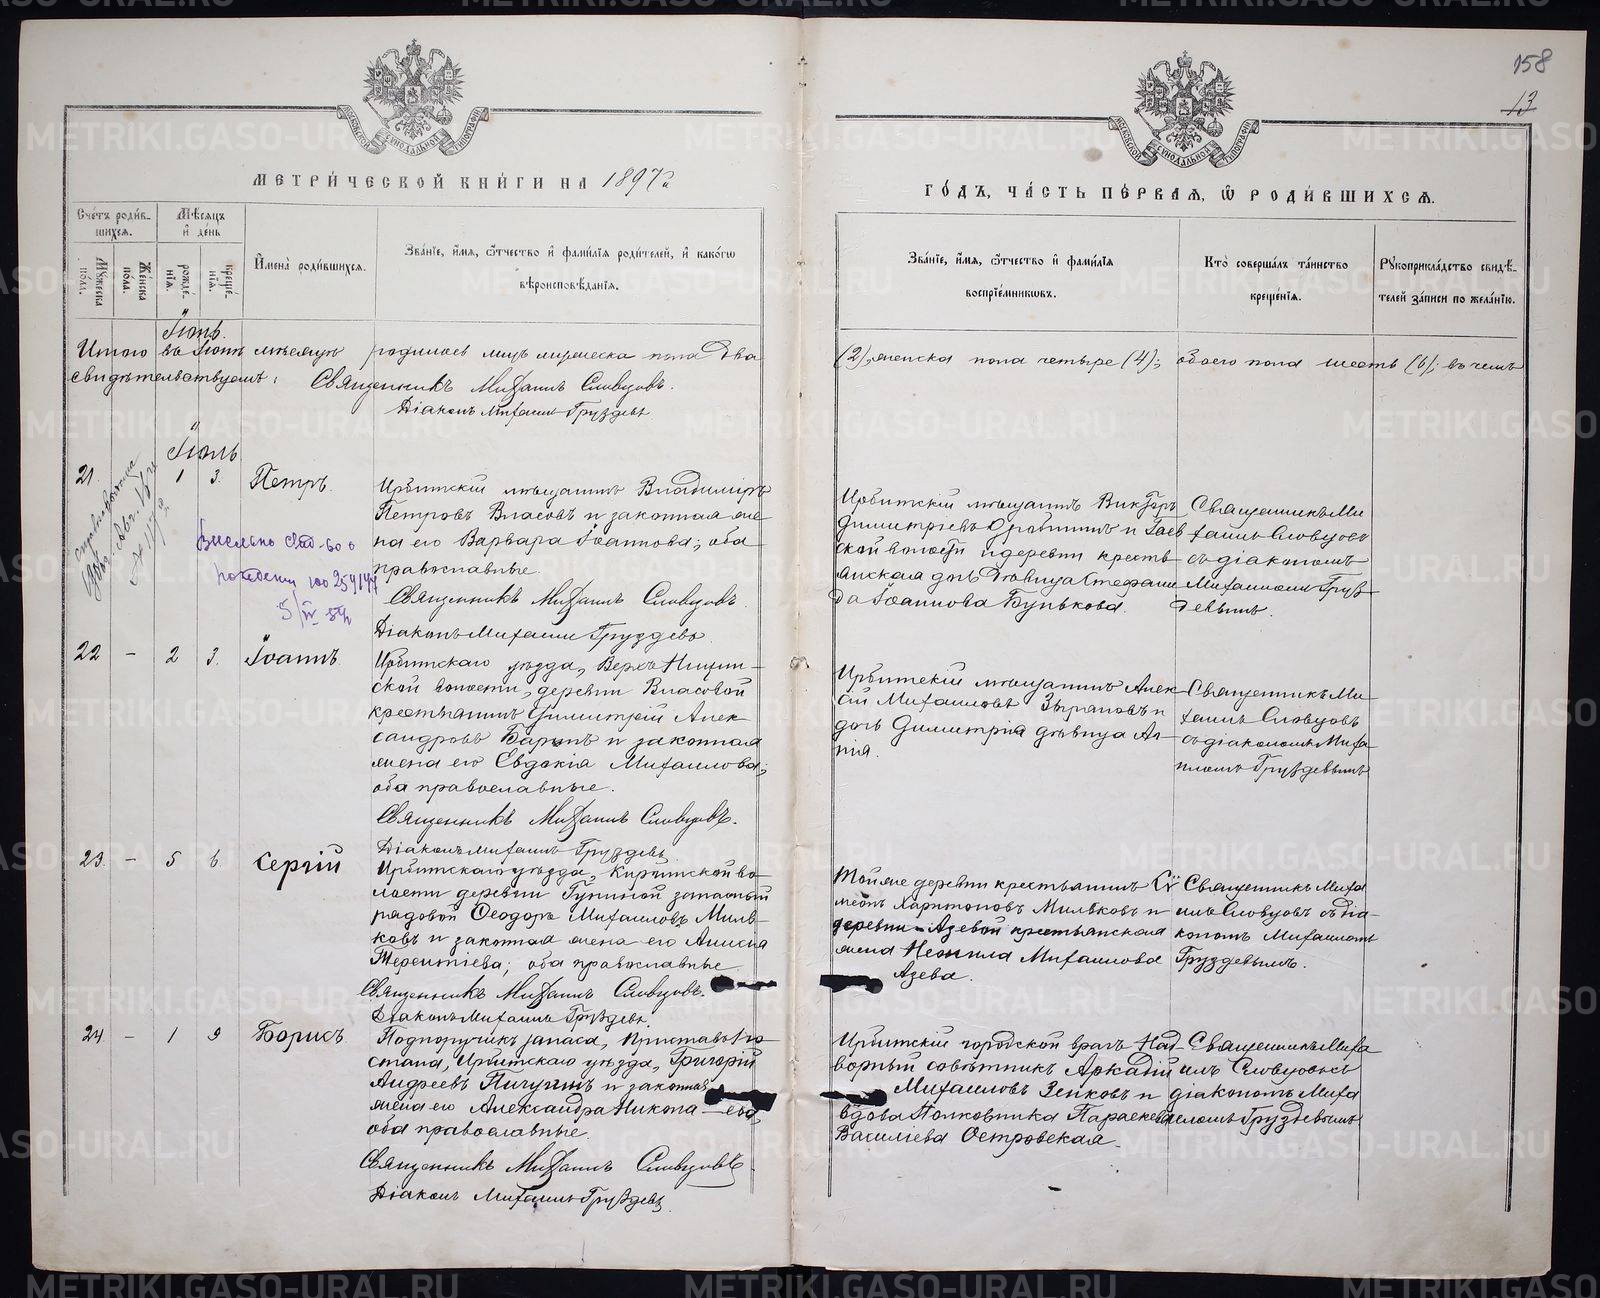 158
13
МЕТРИЧЕСКОЙ КНИГИ НА 1897 г
ГОДЪ, ЧАСТЬ ПЕРВАЯ, Ѡ РОДИВШИХСЯ.
Счетъ родившихся.
Мужеска пола.
Женска пола.
Мѣсяцъ и день
рожденія.
крещенія.
Имена родившихся.
Званіе, имя, ѿчество и фамилія родителей, и какогѡ вѣроисповѣданія.
Званіе, имя, ѿчество и фамилія воспріемниковъ.
Кто совершалъ таинство крещенія.
Рукоприкладство свидѣтелей записи по желанію.
Іюнь.
Итого въ Іюнѣ мѣсяцѣ родилось лицъ мужеска пола два
(2), женска пола четыре (4); обоего пола шесть (6); въ чемъ
свидѣтельствуемъ: Священникъ Михаилъ Словцовъ.
Діаконъ Михаилъ Груздевъ
Іюль
21. 1 3. Петръ.
Ирбитскій мѣщанинъ Владиміръ
Петровъ Власовъ и законная же-
на его Варвара Іоаннова; оба
православные.
Священникъ Михаилъ Словцовъ.
Діаконъ Михаилъ Груздевъ.
Ирбитскій мѣщанинъ Викторъ
Димитріевъ и
ской волости деревни кресть-
янская дочь дѣвица Стефани-
да Іоаннова Бунькова.
Священникъ Ми-
хаилъ Словцовъ
съ діакономъ
Михаиломъ Груз-
девымъ.
22 – 2 3. Іоаннъ
Ирбитскаго уѣзда, Верхъ-Ницин-
ской волости, деревни Власовой
крестьянинъ Димитрій Алек-
сандровъ и законная
жена его Евдокія Михаилова;
оба православные.
Священникъ Михаилъ Словцовъ.
Діаконъ Михаилъ Груздевъ
Ирбитскій мѣщанинъ Алек-
сій Михаиловъ Зыряновъ и
дочь Димитрія дѣвица Ан-
на.
Священникъ Ми-
хаилъ Словцовъ
съ діакономъ Миха-
иломъ Груздевымъ
23. – 5 6. Сергій
Ирбитскаго уѣзда, Киргинской во-
лости деревни запасный
рядовой Ѳеодоръ Михаиловъ Миль-
ковъ и законная жена его Анисія
Терентіева; оба православные
Священникъ Михаилъ Словцовъ.
Діаконъ Михаилъ Груздевъ.
Той же деревни крестьянинъ Сѵ-
меонъ Харитоновъ Мильковъ и
деревни Азевой крестьянская
жена Неонила Михаилова
Азева.
Священникъ Миха-
илъ Словцовъ съ діа-
кономъ Михаиломъ
Груздевымъ.
24 – 1 9 Борисъ
Подпоручикъ запаса, Приставъ 1го
стана, Ирбитскаго уѣзда, Григорій
Андреевъ Пичугинъ и законная
жена его Александра Никола-ева,
оба православные.
Священникъ Михаилъ Словцовъ
Діаконъ Михаилъ Груздевъ
Ирбитскій городской врачъ Над-
ворный совѣтникъ Аркадій
Михаиловъ Зенковъ и
вдова Полковника Параскева
Василіева Островская.
Священникъ Миха-
илъ Словцовъ съ
діакономъ Миха-
иломъ Груздевымъ
METRIKI.GASO-URAL.RU